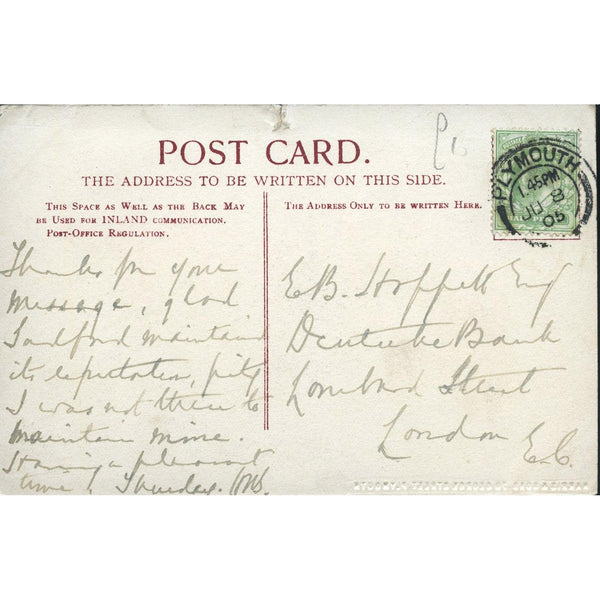 POST CARD.
THE ADDRESS TO BE WRITTEN ON THIS SIDE.
THIS SPACE AS WELL AS THE BACK MAY
BE USED FOR INLAND COMMUNICATION.
POST-OFFICE REGULATION.
THE ADDRESS ONLY TO BE WRITTEN HERE.
PLYMOUTH
1.45PM
JU 8
05
Thanks for your
message, glad
Sandford maintained
its reputation, pity
I was not there to
maintain mine.
Having a pleasant
time. Thursday.
E B. Hoppett Esq
Deutsche Bank
Lombard Street
London E.C.